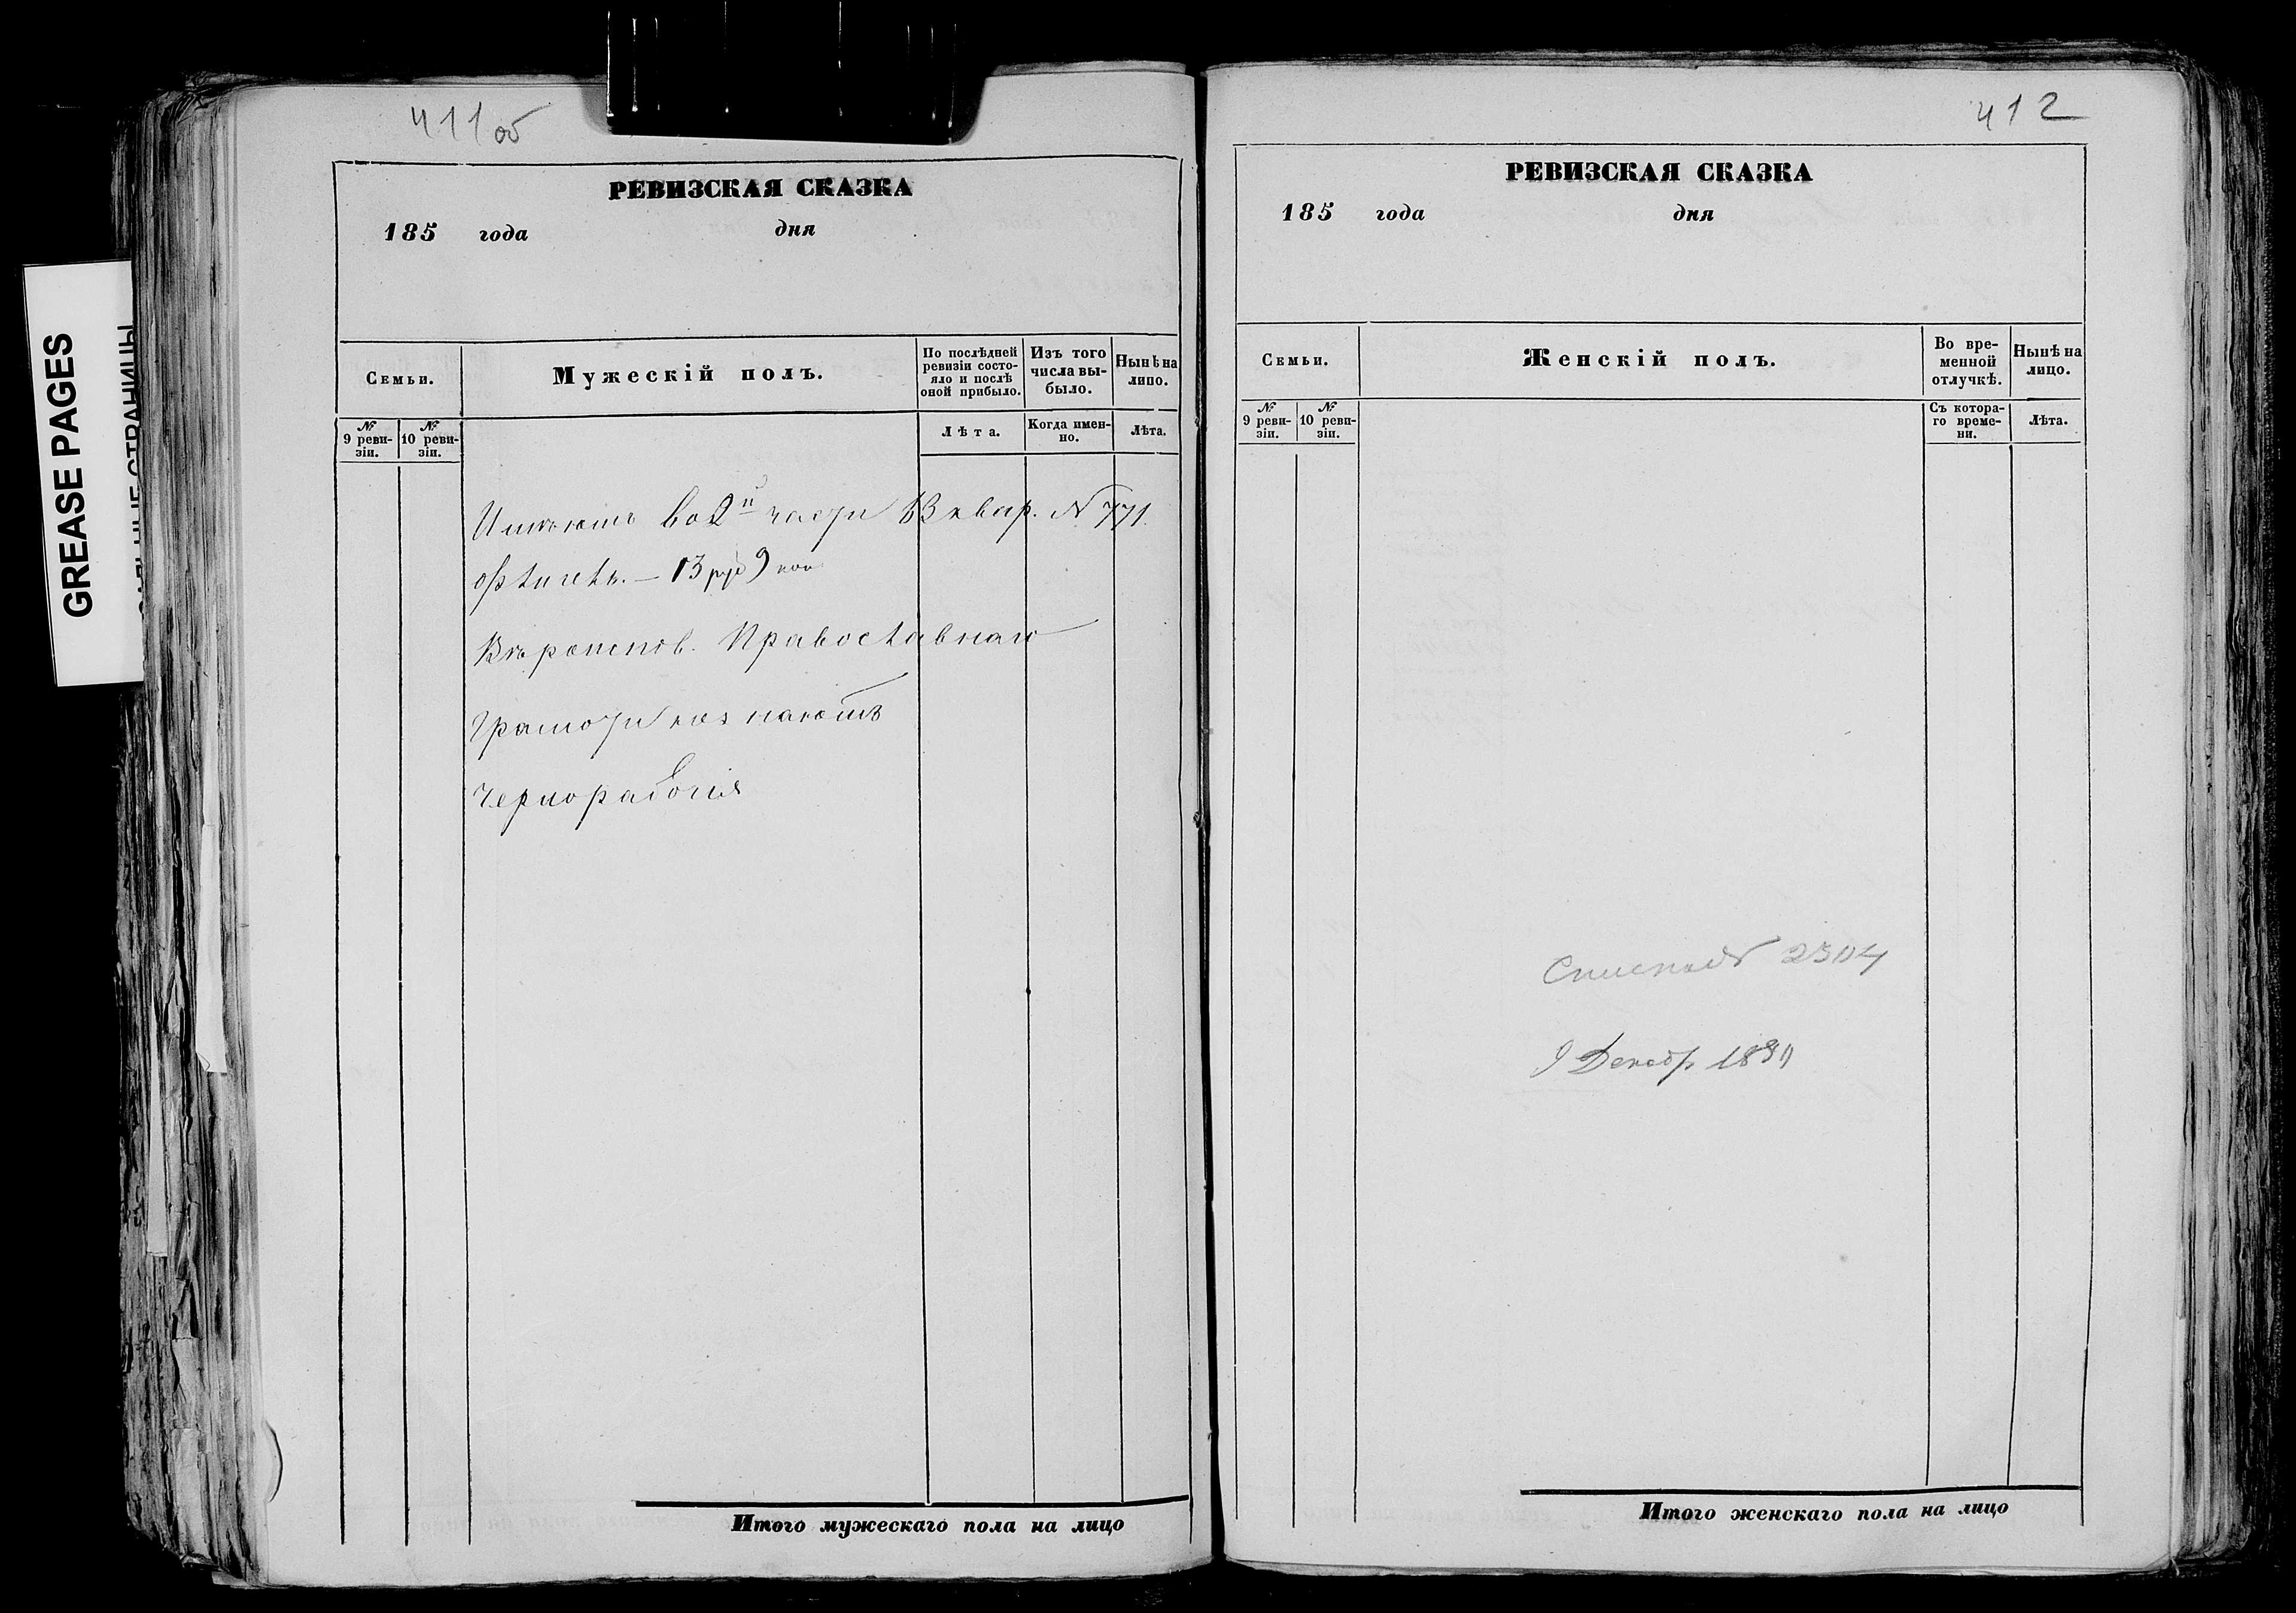 411об
РЕВИЗСКАЯ СКАЗКА
185 года дня
Семьи.
Мужескій полъ.
По послѣдней ревизіи состо-
яло и послѣ
оной прибыло.
Изъ того
числа вы-
было.
Нынѣ на
лицо.
№ 9 реви-
зіи.
№ 10 реви-
зіи.
Лѣта.
Когда имен-
но.
Лѣта.
Имѣютъ во 2й части 13 квар. N 771
13 руб 9 коп
Вѣроисповѣд. Православнаго
Грамоти незнаютъ
Чернорабочія
Итого мужескаго пола на лицо
412
РЕВИЗСКАЯ СКАЗКА
185 года дня
Семьи.
Женскій полъ.
Во вре-
менной
отлучкѣ.
Нынѣ на
лицо.
№ 9 реви-
зіи.
№ 10 реви-
зіи.
Съ котора-
го време-
ни.
Лѣта.
2304
9 Декабр
Итого женскаго пола на лицо
GREASE PAGES